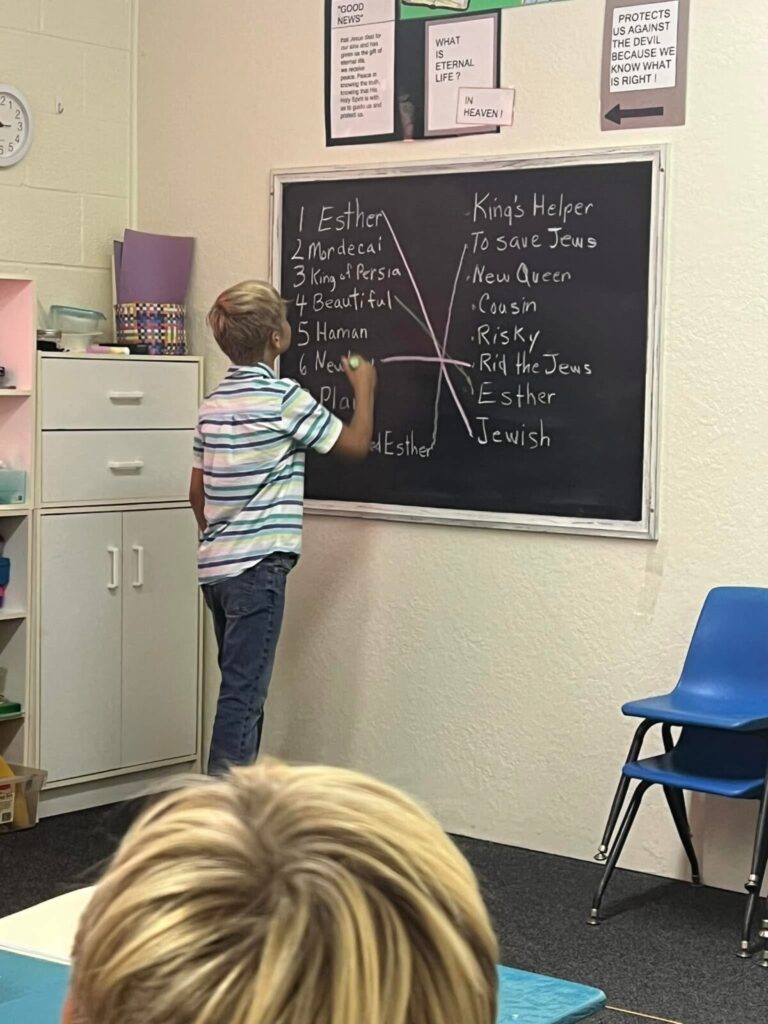 "GOOD
NEWS"
that Jesus died for
our sins and has
given us the gift of
eternal life.
we receive
peace. Peace in
knowing the truth,
knowing that His
Holy Spirit is with
us to guide us and
protect us.
WHAT
IS
ETERNAL
LIFE ?
IN
HEAVEN !
PROTECTS
US AGAINST
THE DEVIL
BECAUSE WE
KNOW WHAT
IS RIGHT !
12
1
2
3
4
5
1 Esther
2 Mordecai
3 King of Persia
4 Beautiful
5 Haman
6 New
Pla
Esther
King's Helper
To save Jews
New Queen
Cousin
Risky
Rid the Jews
Esther
Jewish